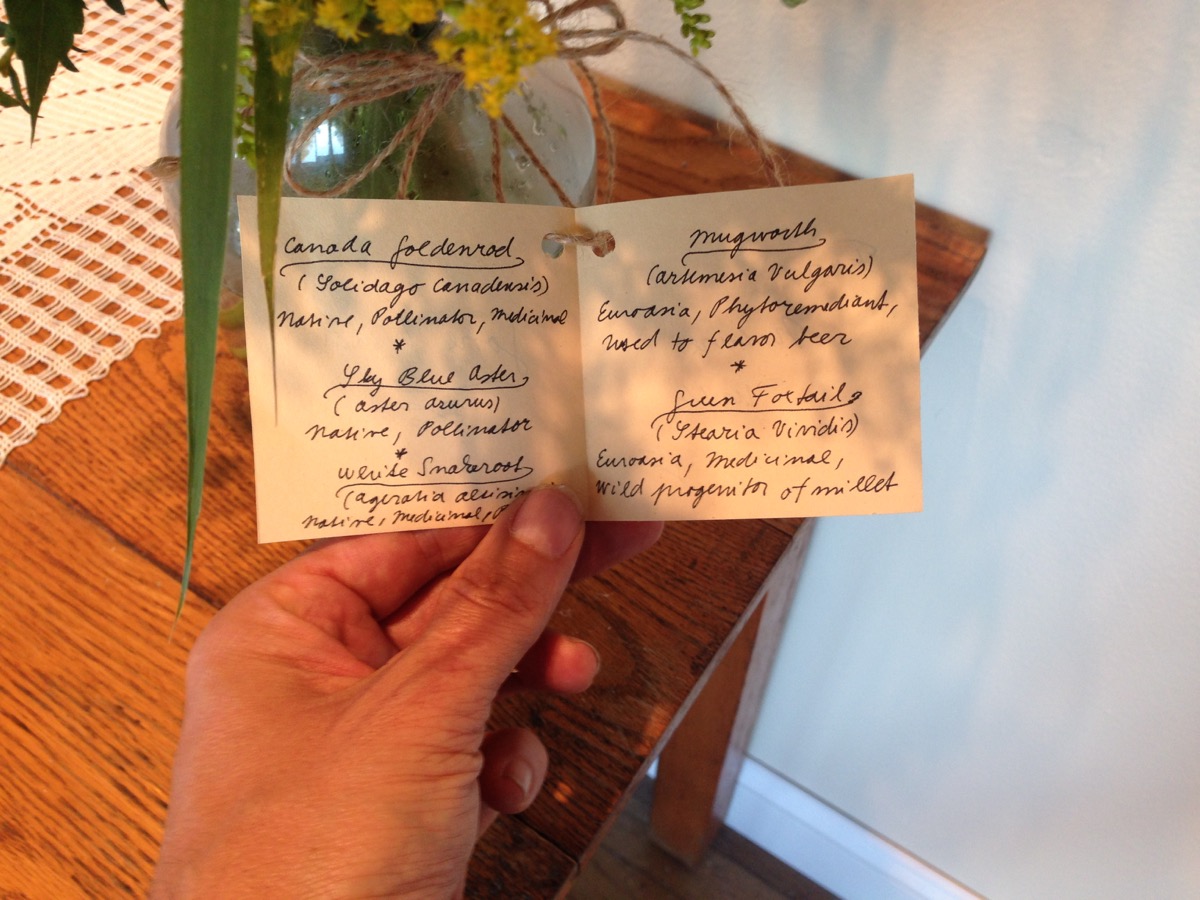 Canada Goldenrod
(Solidago Canadensis)
Native, Pollinator, Medicinal
*
Sky Blue Aster
(Aster azurus)
Native, Pollinator
*
White Snakeroot
(Ageratia
Native, Medicinal,
Mugworth
(Artemesia Vulgaris)
Euroasia, Phytoremediant,
used to flavor beer
*
Green Foxtail
(Stearia Viridis)
Euroasia, Medicinal,
wild progenitor of millet